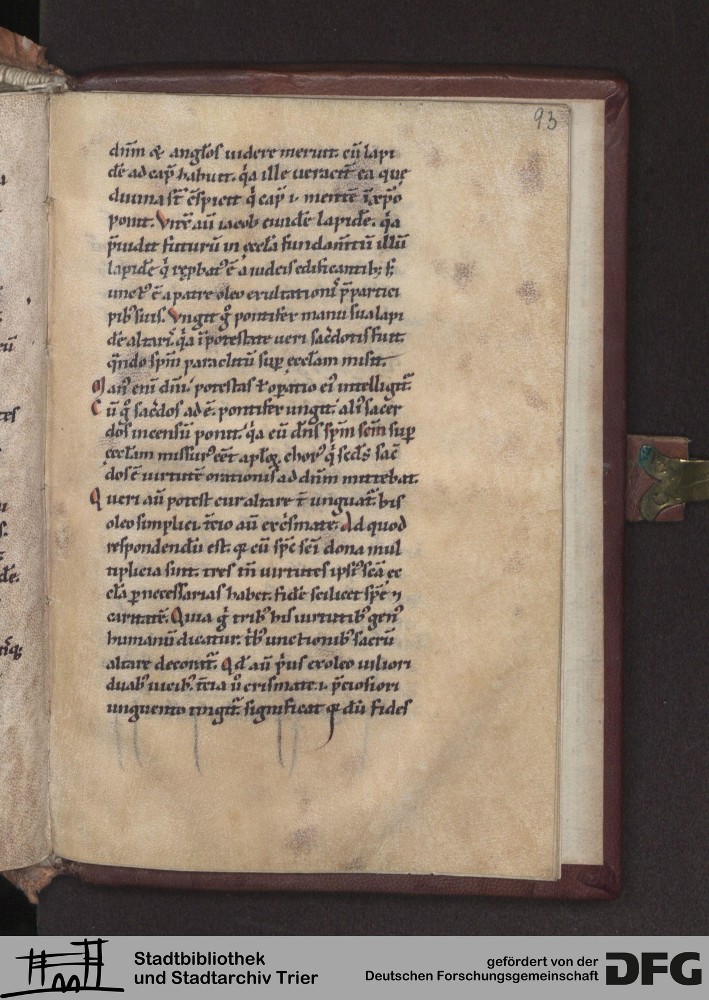 93
dñm & angłos uidere meruit. cũ lapi
dẽ ad cap̃ habuit. q̃a ille ueracit̃ ea que
diuina st̃ c̃spicit q̃ cap̃ .i. mentẽ ĩ xp̃o
ponit. Vnx̃ aũ iacob eundẽ lapidẽ. q̃a
p̃uidit futurũ in ęccła fundam̃tũ illũ
lapidẽ q̃ rep̃bat᷒ ẽ a iudeis edificantib; s̃
unct᷒ ẽ a patre oleo exultationis p̃ partici
pib᷒ suis. Vngit g̊ pontifex manu sua lapi
dẽ altaris. q̃a ĩ potestate ueri sac̃dotis fuit.
q̃ndo sp̃m paraclitũ sup̃ eccłam misit.
Man᷒ eni dñi. potestas ł op̃atio ei᷒ intelligit᷒.
Cũ g̊ sac̃dos ad ẽ. pontifex ungit. ali᷒ sacer
dos incensũ ponit. q̃a cũ dñs sp̃m scm̃ sup̃
eccłam missur᷒ eẽt
dos ẽ uirtutẽ orationis ad dñm mittebat.
Queri aũ potest cur altare
oleo simplici. tercio aũ
respondendũ est. q̃ cũ sp̃c sci dona mul
tiplicia sint. tres tñ uirtutes ipsi᷒ scã ec
cła p̱necessarias habet. fidẽ scilicet spẽ ⁊
caritatẽ. Quia g̊ trib᷒ his uirtutib᷒ gen᷒
humanũ dicatur. t̃b᷒ unctionib᷒ sacrũ
altare decorat᷒. Qd̃ aũ p̃us ex oleo uiliori
duab᷒ uicib᷒. t̃cia ũ crismate .i. p̃ciosiori
unguento tingit᷒. significat q̃ dũ fides
Stadtbibliothek
und Stadtarchiv Trier
gefördert von der
Deutschen Forschungsgemeinschaft
DFG